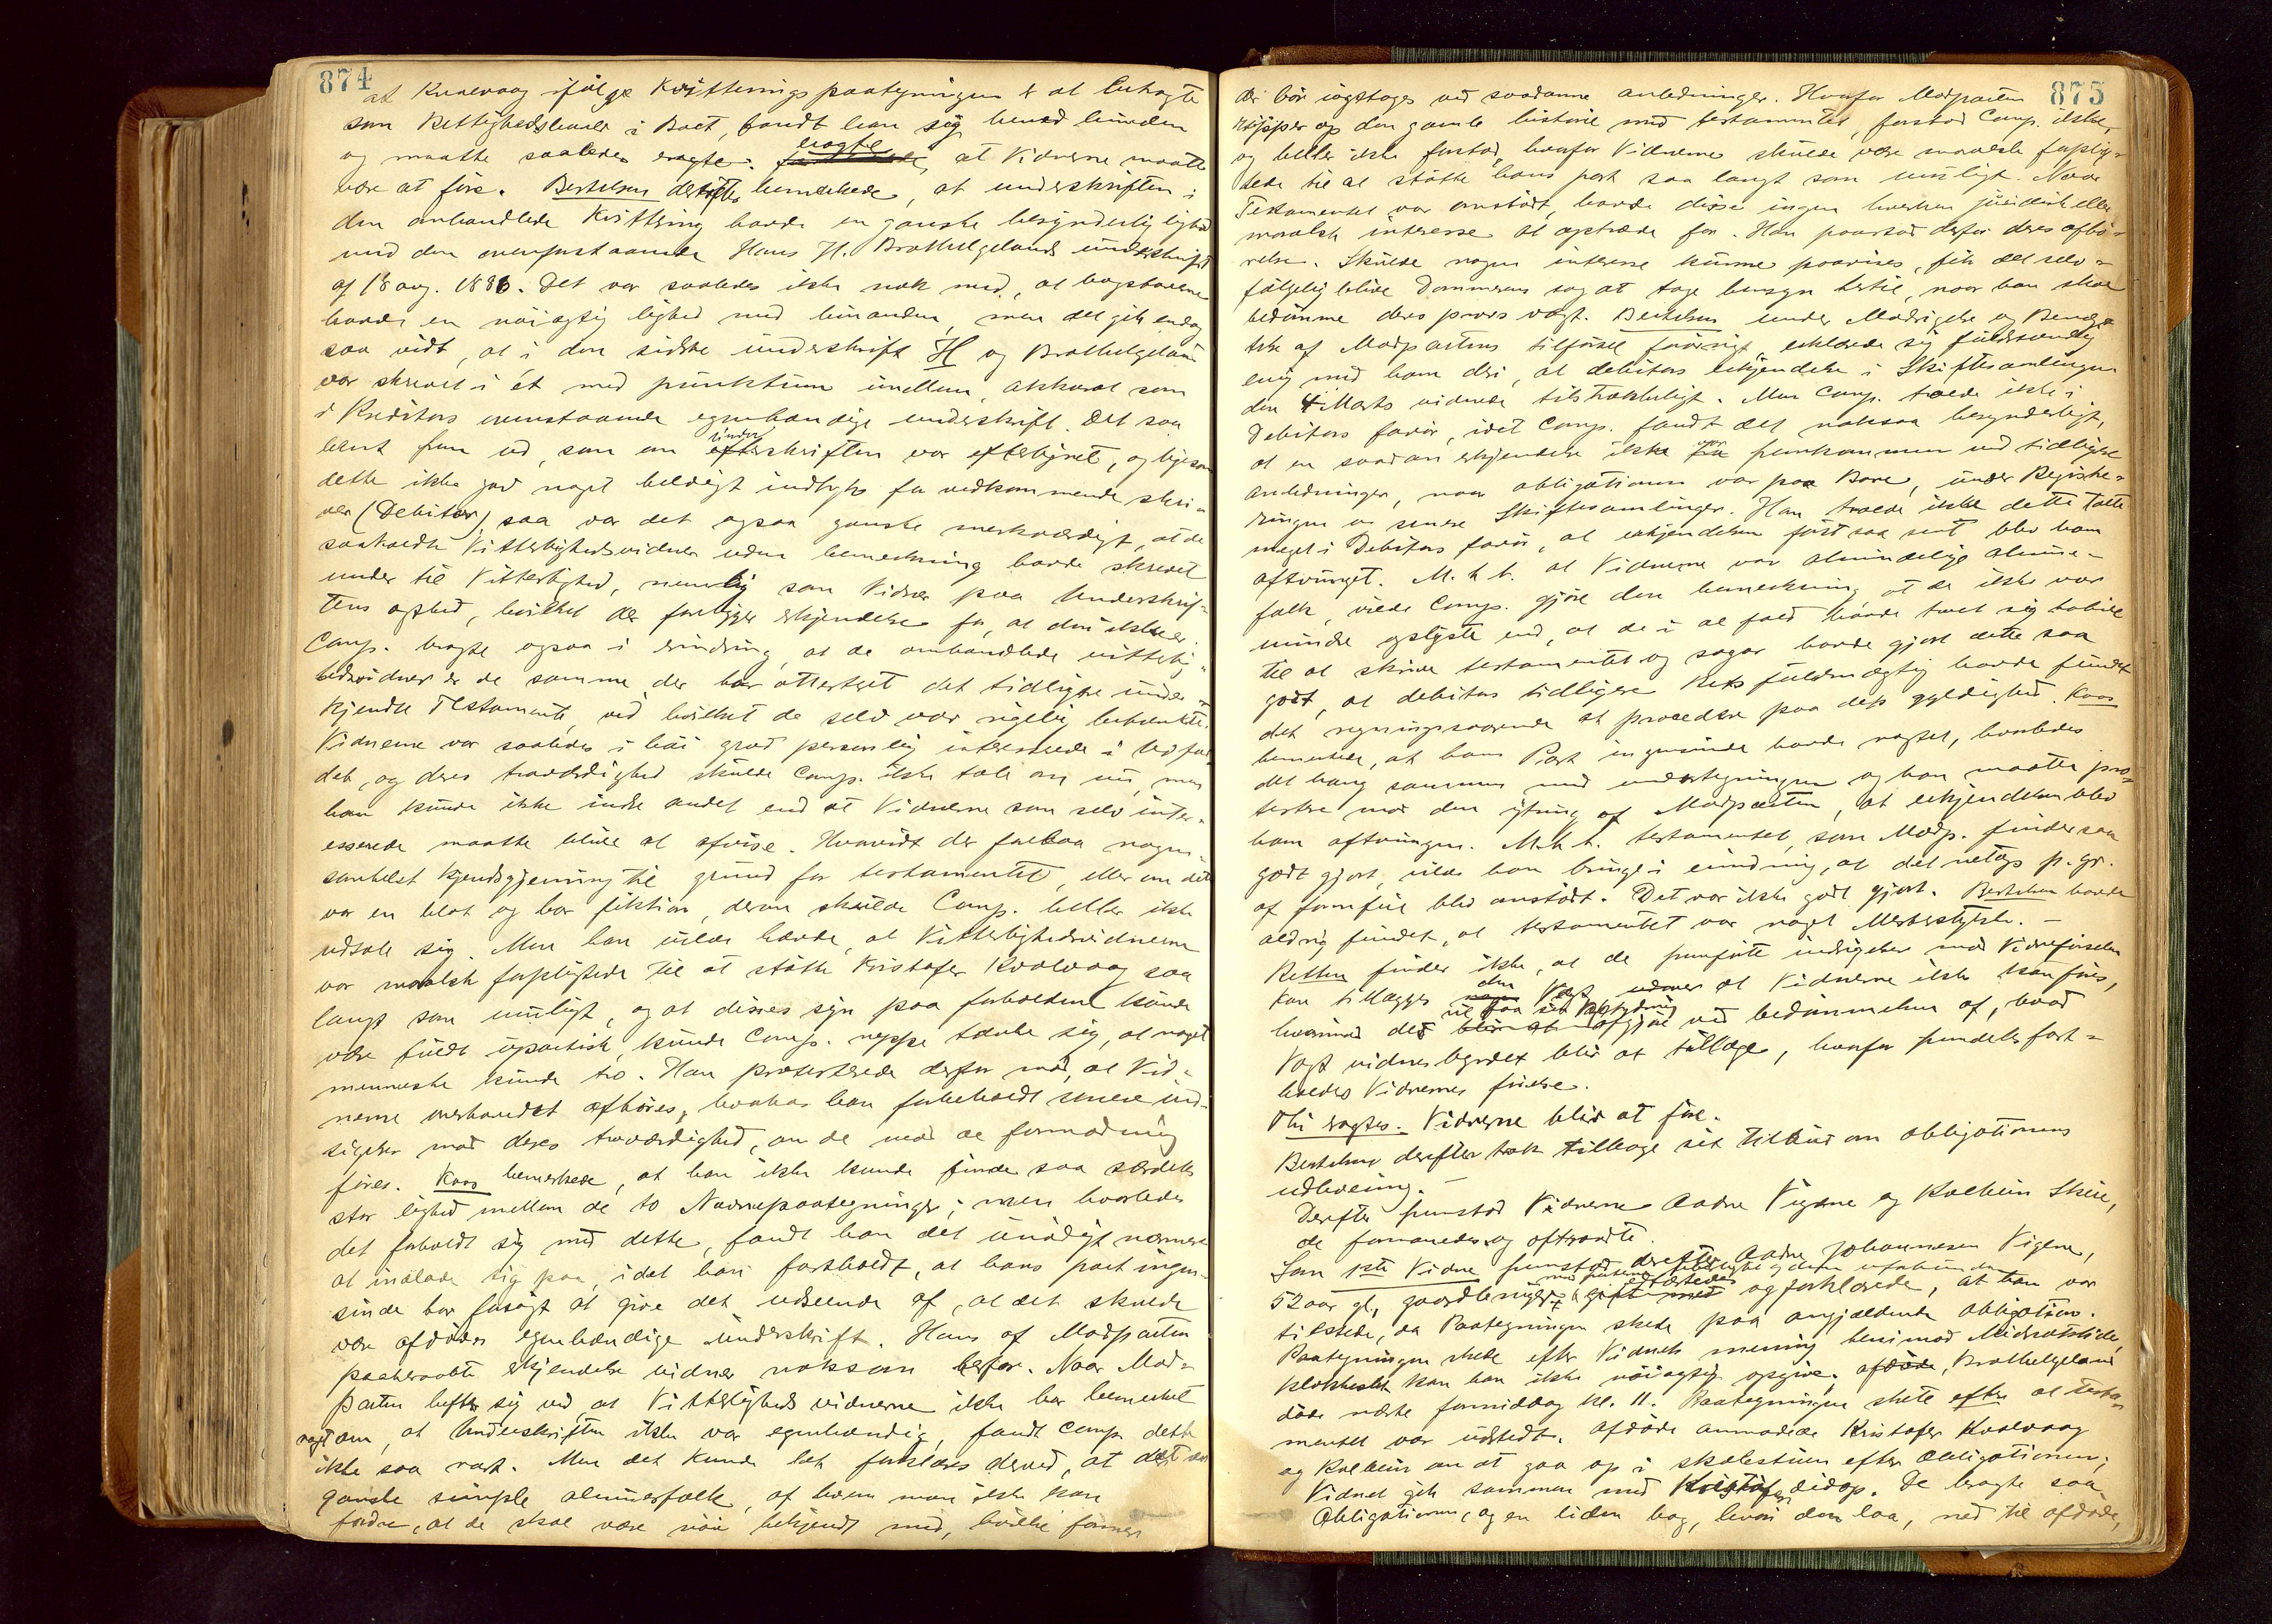 874
at Kvalvaag ifølge Kvitteringspaategningen er at betragte
som Rettighedshaver i Boet, fandt han sig herved bunden
og maatte saaledes vægte at Vidnerne maatte
være at føre. Bertelsen derefter bemærkede, at underskriften i
den omhandlede Kvittering havde en ganske besynderlig lighed
med den ovenforstaaende Hans H. Brathelgelands underskrift
af 18 aug. 1886. Det var saaledes ikke nok med, at bogstaverne
havde en nøiagtig lighed med hinanden, men det gik endog
saa vidt, at i den sidste underskrift H og Brathelgeland
var skrevet i ét med punktum imellem, akkurat som
i Kreditors ovenstaaende egenhændige underskrift. Det saa
bent frem ud, som om underskriften var eftertegnet, og ligesom
dette ikke gav noget heldigt indtryk for vedkommende skri-
ver (Debitor), saa var det ogsaa ganske merkværdigt, at de
saakaldte Vitterlighedsvidner uden bemerkning havde skrevet
under til Vitterlighed, nemlig som Vidner paa Underskrif-
tens ægthed, hvilket der foreligger erkjendelse for, at den ikke er.
Comp. bragte ogsaa i erindring, at de omhandlede vitterlig-
hedsvidner er de samme, der har attesteret det tidligere under-
kjendte Testamente, ved hvilket de selv var rigelig betænkte.
Vidnerne var saaledes i høi grad personlig interesserede i Udfal-
det, og deres troværdighed skulde Comp. ikke tale om nu, men
han kunde ikke indse andet end at Vidnerne som selv inter-
esserede maatte blive at afvise. Hvorvidt der forelaa nogen-
somhelst kjendsgjerning til grund for testamentet, eller om det
var en blot og bar fiktion, derom skulde Comp. heller ikke
udtale sig. Men han vilde hævde, at Vitterlighedsvidnerne
var moralsk forpligtede til at støtte Kristofer Kvalvaag saa
langt som muligt, og at disses syn paa forholdene kunde
være fuldt upartisk, kunde Comp. neppe tænke sig, at noget
menneske kunde tro. Han protesterede derfor mod, at Vid-
nerne overhovedet afhøres, hvorhos han forbeholdt senere ind-
sigelser mod deres troværdighed, om de mod al formodning
føres. Koos bemerkede, at han ikke kunde finde saa særdeles
stor lighed mellem de to Navnepaategninger; men hvorledes
det forholdt sig med dette, fandt han det unødigt nærmere
at indlade sig paa, idet han fastholdt, at hans part ingen-
sinde har forsøgt at give det udseende af, at det skulde
være afdødes egenhændige underskrift. Hans af Modparten
paaberaabte erkjendelse vidner noksom herfor. Naar Mod-
parten hefter sig ved, at Vitterlighedsvidnerne ikke har bemerket
noget om, at Underskriften ikke var egenhændig, fandt Comp. dette
ikke saa rart. Men det kunde let forklares derved, at det var
ganske simple almuesfolk, af hvem man ikke kan
fordre, at de skal være nøie bekjendt med, hvilke former
875
der bør iagttages ved saadanne anledninger. Hvorfor Modparten
ripper op den gamle historie med testamentet, forstod Comp. ikke,
og heller ikke forstod, hvorfor Vidnerne skulde være moralsk forplig-
tede til at støtte hans part saa langt som muligt. Naar
Testamentet var omstødt, havde disse ingen hverken juridisk eller
moralsk interesse at optræde for. Han paastod derfor deres afhø-
relse. Skulde nogen interesse kunne paavises, fik det selv-
følgelig blive Dommerens sag at tage hensyn hertil, naar han skal
bedømme deres provs vægt. Bertelsen under Modsigelse og Benæg-
telse af Modpartens tilførsel forøvrigt, erklærede sig fuldstændig
enig med ham deri, at debitors erkjendelse i Skiftesamlingen
den 4 Marts vidnede tilstrækkeligt. Men Comp. troede ikke i
Debitors favør, idet Comp. fandt det noksaa besynderligt,
at en saadan erkjendelse ikke var fremkommen ved tidligere
anledninger, naar obligationen var paa Bane, under Registre-
ringen og senere Skiftesamlinger. Han troede ikke dette talte
meget i Debitors favør, at erkjendelsen først saa sent blev ham
aftvunget. M. h. t. at Vidnerne var almindelige almue-
folk, vilde Comp. gjøre den bemerkning, at de ikke var
mindre oplyste end, at de i al fald havde troet sig habile
til at skrive testamentet og sogar havde gjort dette saa
godt, at debitors tidligere Retsfuldmægtig havde fundet
det regningssvarende at procedere paa dets gyldighed. Koos
bemerkede, at hans Part ingensinde havde nægtet, hvorledes
det hang sammen med undertegningen og han maatte pro-
testere mod den ytring af Modparten, at erkjendelsen blev
ham aftvungen. M. h. t. testamentet, som Modp. finder saa
godt gjort, vilde han bringe i erindring, at det netop p. gr.
af formfeil blev omstødt. Det var ikke godt gjort. Bertelsen havde
aldrig fundet, at testamentet var noget Mesterstykke. –
Retten finder ikke, at de fremførte indsigelser mod Vidneførselen
kan tillægges den Vægt at Vidnerne ikke kan føres,
hvorimod det vil faa sin Betydning ved bedømmelsen af, hvad
Vægt vidnesbyrdet blir at tillægge, hvorfor fremdeles fast-
holdes Vidnernes førelse.
Thi vægtes: Vidnerne blir at føre.
Bertelsen derefter tok tilbage sit Tilbud om obligationens
udlevering. –
Derefter fremstod Vidnerne Aadne Vigene og Kolbein Skeie,
de formanedes og aftraadte.
Som 1ste Vidne fremstod derefter Aadne Johannesen Vigene,
52 aar gl., gaardbruger og forklarede, at han var
tilstede, da Paategningen skede paa angjældende obligation.
Paategningen skede efter Vidnets mening henimod Midnatstide,
klokkeslet kan han ikke nøiagtig opgive, Brathelgeland
døde næste formiddag kl. 11. Paategningen skete efter at testa-
mentet var udstedt. Afdøde anmodede Kristofer Kvalvaag
og Kolbein om at gaa op i skolestuen efter Obligationen;
Vidnet gik sammen med Kristofer didop. De bragte saa
Obligationen, og en liden bog, hvori den laa, ned til afdøde,